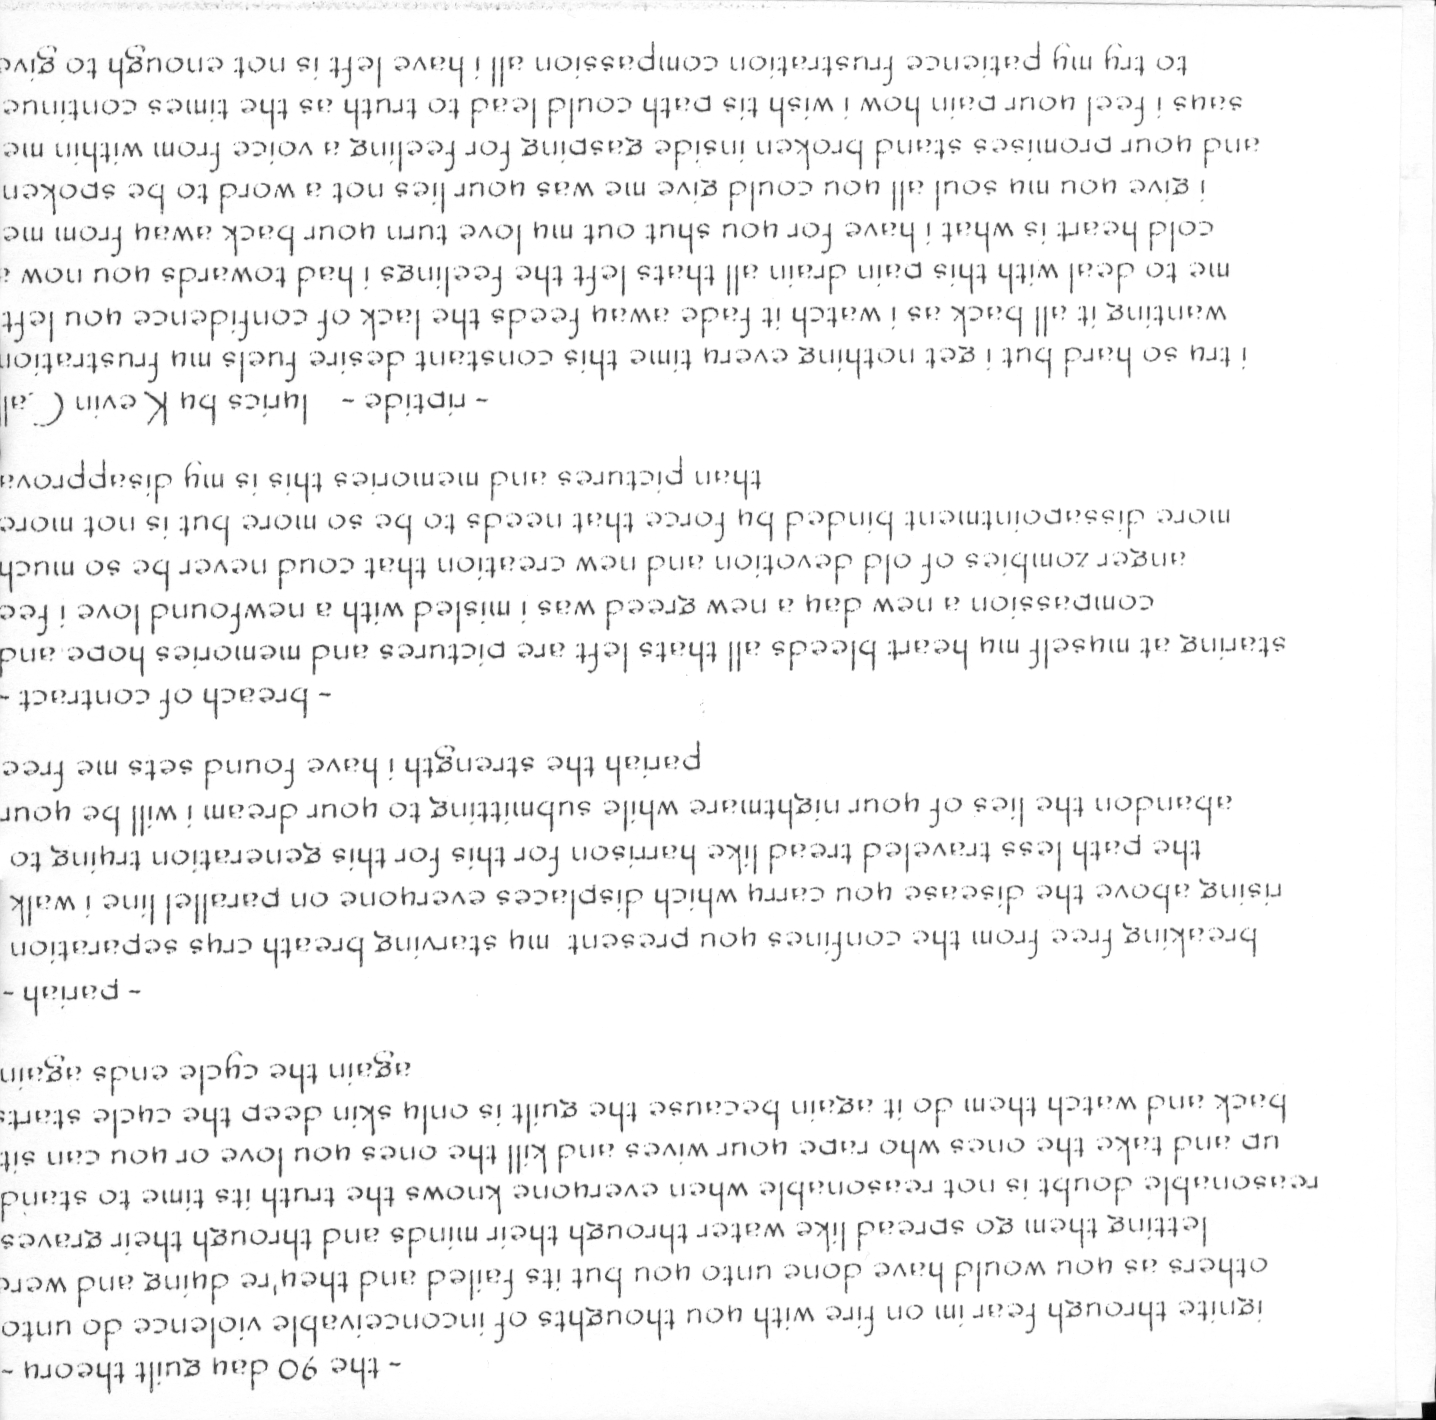 - the 90 day guilt theory -
ignite through fear im on fire with you thoughts of inconceivable violence do unto
others as you would have done unto you but its failed and they're dying and were
letting them go spread like water through their minds and through their graves
reasonable doubt is not reasonable when everyone knows the truth its time to stand
up and take the ones who rape your wives and kill the ones you love or you can sit
back and watch them do it again because the guilt is only skin deep the cycle starts
again the cycle ends again
- pariah -
breaking free from the confines you present my starving breath crys separation
rising above the disease you carry which displaces everyone on parallel line i walk
the path less traveled tread like harrison for this for this generation trying to
abandon the lies of your nightmare while submitting to your dream i will be your
pariah the strength i have found sets me free
- breach of contract -
staring at myself my heart bleeds all thats left are pictures and memories hope and
compassion a new day a new greed was i misled with a newfound love i fee
anger zombies of old devotion and new creation that coud never be so much
more dissapointment binded by force that needs to be so more but is not more
than pictures and memories this is my disapprova
- riptide - lyrics by Kevin Call
i try so hard but i get nothing every time this constant desire fuels my frustration
wanting it all back as i watch it fade away feeds the lack of confidence you left
me to deal with this pain drain all thats left the feelings i had towards you now a
cold heart is what i have for you shut out my love turn your back away from me
i give you my soul all you could give me was your lies not a word to be spoken
and your promises stand broken inside gasping for feeling a voice from within me
says i feel your pain how i wish tis path could lead to truth as the times continue
to try my patience frustration compassion all i have left is not enough to give